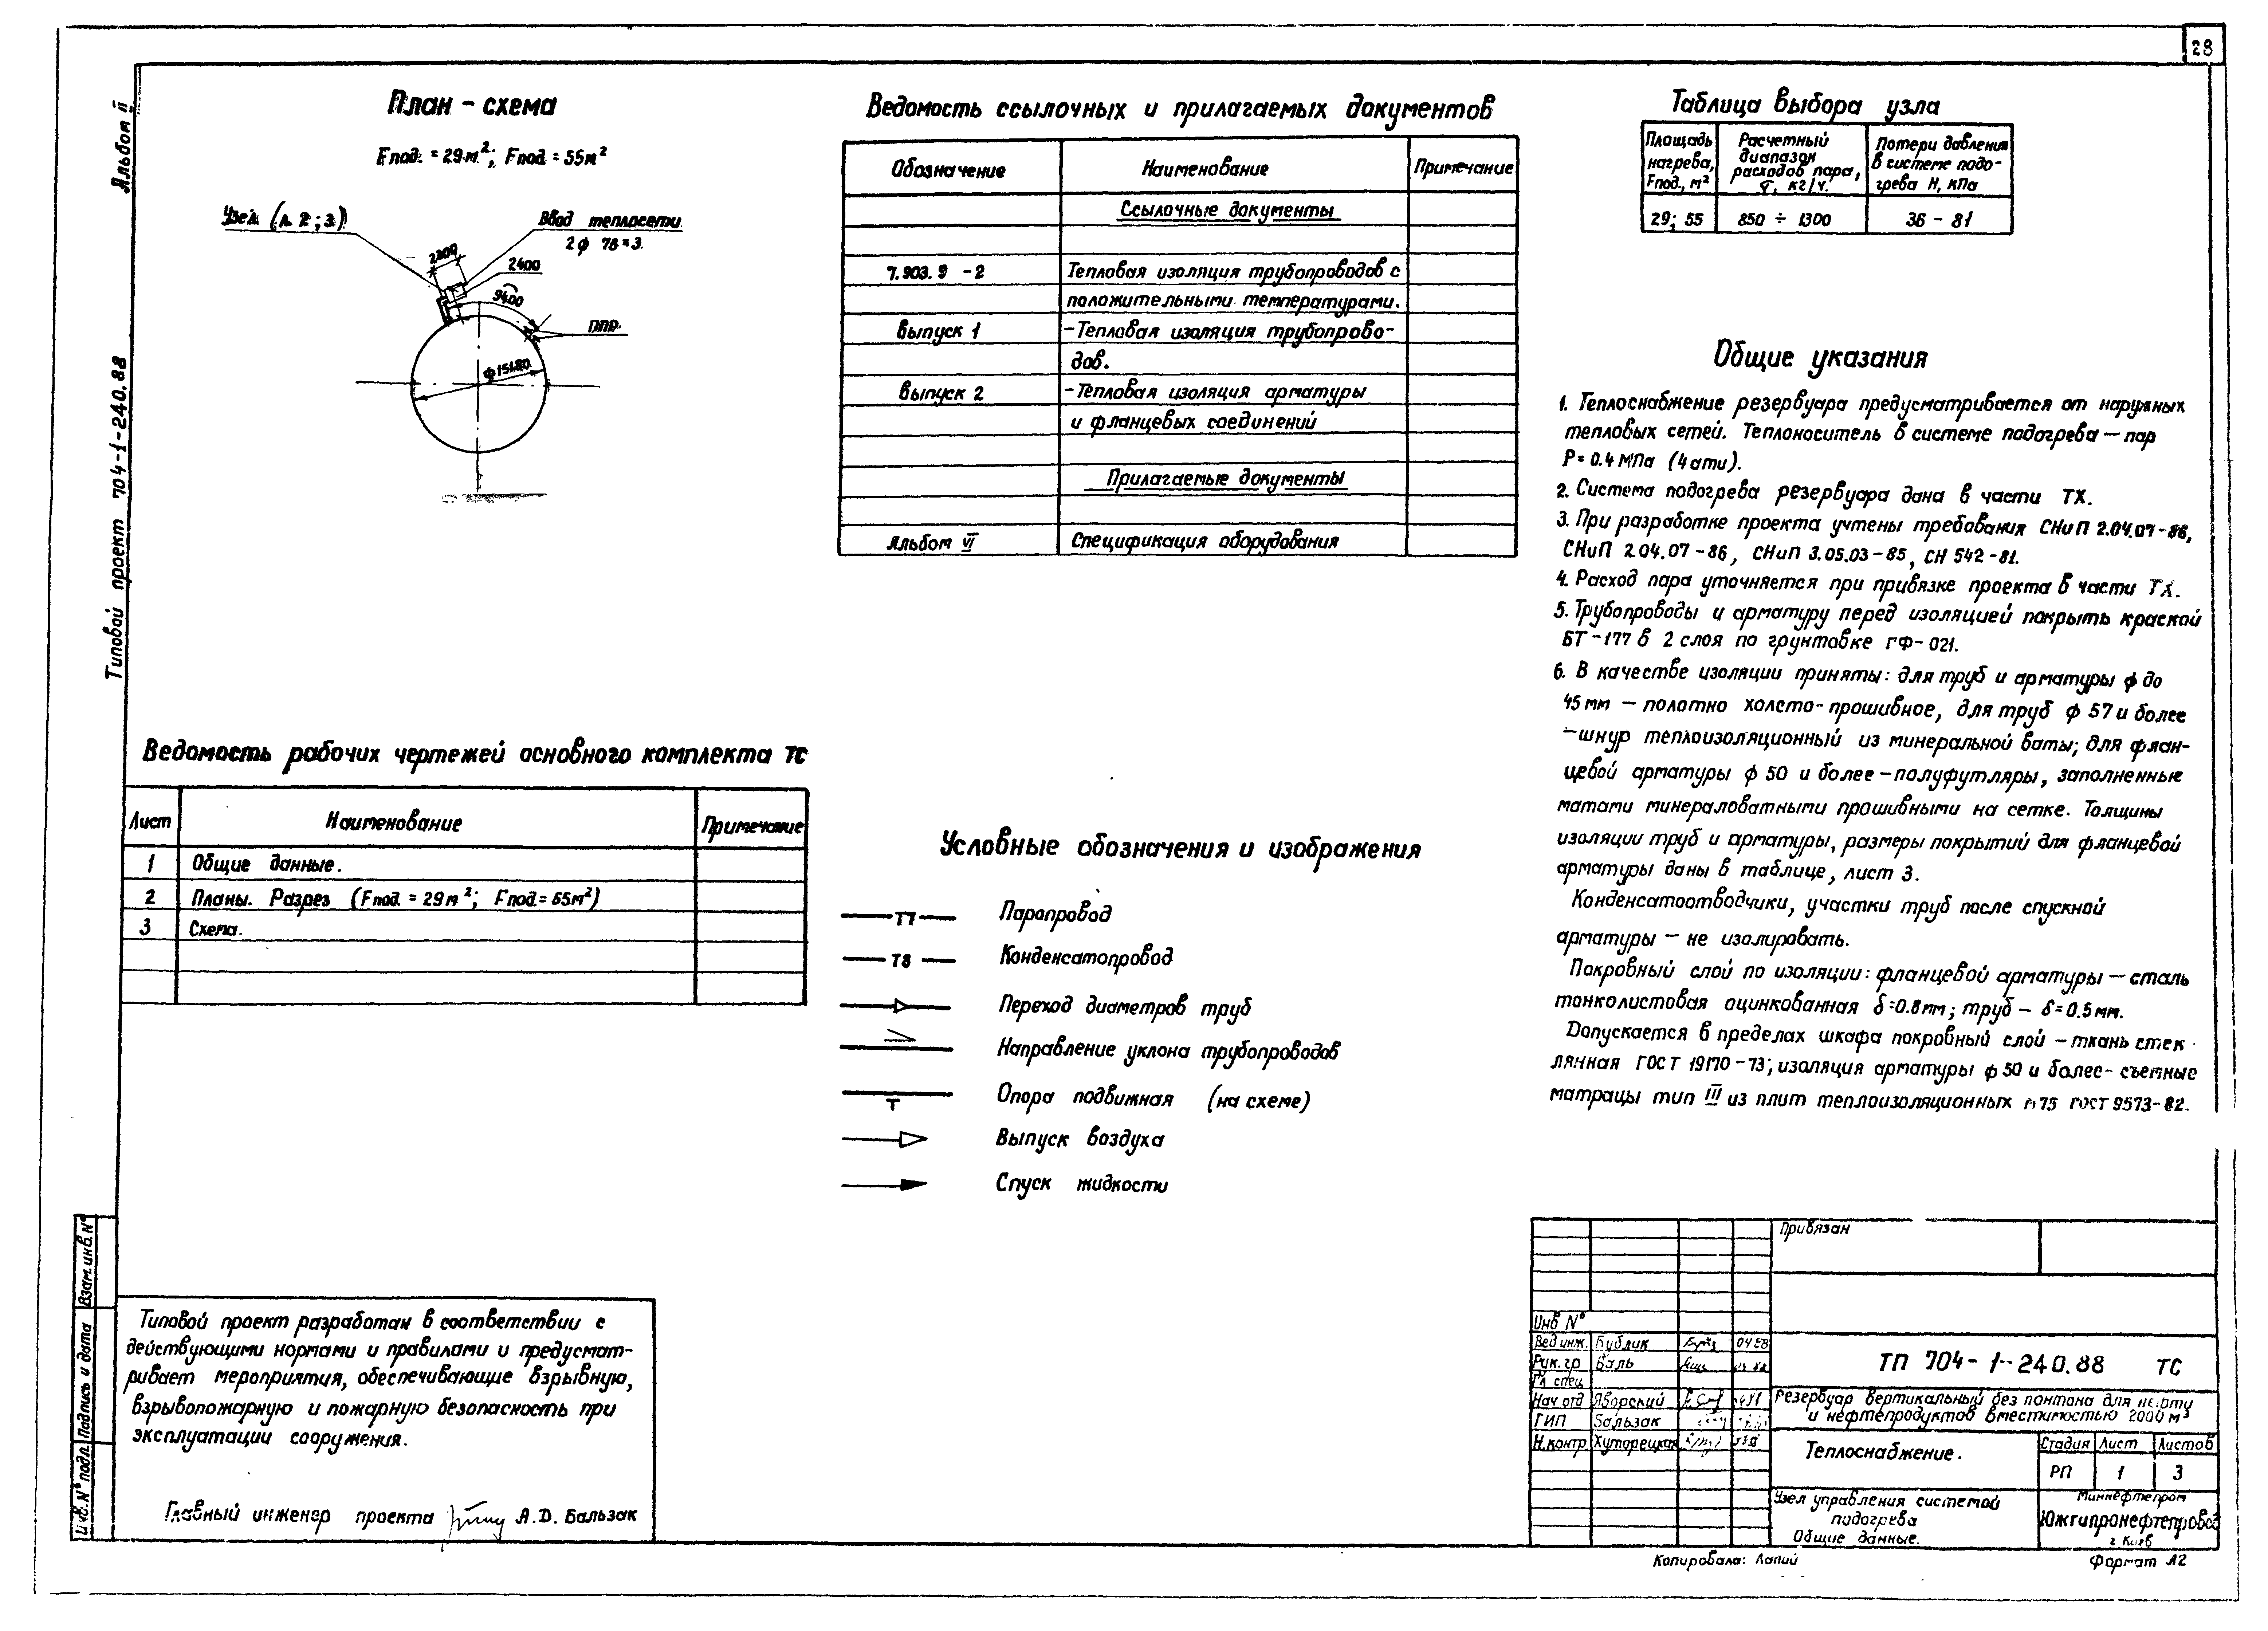 28
Альбом II
Типовой проект 704-1-240.88
План - схема
Fпод. = 29 м²; Fпод. = 55 м²
Узел (л. 2; 3)
Ввод теплосети
2 ф 76×3.
2200
2400
9400
ППР
ф 15180
Ведомость ссылочных и прилагаемых документов
Обозначение Наименование Примечание
Ссылочные документы
7.903.9 - 2 Тепловая изоляция трубопроводов с
положительными температурами.
выпуск 1 - Тепловая изоляция трубопрово-
дов.
выпуск 2 - Тепловая изоляция арматуры
и фланцевых соединений
Прилагаемые документы
Альбом VI Спецификация оборудования
Таблица выбора узла
Площадь нагрева, Fпод., м² Расчетный диапазон расходов пара, G, кг/ч. Потери давления в системе подо- грева H, кПа
29; 55 850 ÷ 1300 36 - 81
Общие указания
1. Теплоснабжение резервуара предусматривается от наружных
тепловых сетей. Теплоноситель в системе подогрева - пар
P = 0.4 МПа (4 ати).
2. Система подогрева резервуара дана в части ТХ.
3. При разработке проекта учтены требования СНиП 2.04.07-86,
СНиП 2.04.07-86, СНиП 3.05.03-85, СН 542-81.
4. Расход пара уточняется при привязке проекта в части ТХ.
5. Трубопроводы и арматуру перед изоляцией покрыть краской
БТ-177 в 2 слоя по грунтовке ГФ-021.
6. В качестве изоляции приняты: для труб и арматуры ф до
45 мм - полотно холсто-прошивное, для труб ф 57 и более
- шнур теплоизоляционный из минеральной ваты; для флан-
цевой арматуры ф 50 и более - полуфутляры, заполненные
матами минераловатными прошивными на сетке. Толщины
изоляции труб и арматуры, размеры покрытий для фланцевой
арматуры даны в таблице, лист 3.
Конденсатоотводчики, участки труб после спускной
арматуры - не изолировать.
Покровный слой по изоляции: фланцевой арматуры - сталь
тонколистовая оцинкованная δ=0.8 мм; труб - δ=0.5 мм.
Допускается в пределах шкафа покровный слой - ткань стек-
лянная ГОСТ 19170-73; изоляция арматуры ф 50 и более - съемные
матрацы тип III из плит теплоизоляционных п 75 ГОСТ 9573-82.
Ведомость рабочих чертежей основного комплекта ТС
Лист Наименование Примечание
1 Общие данные.
2 Планы. Разрез (Fпод. = 29 м²; Fпод. = 55 м²)
3 Схема.
Условные обозначения и изображения
Т7 Паропровод
Т8 Конденсатопровод
Переход диаметров труб
Направление уклона трубопроводов
Опора подвижная (на схеме)
Выпуск воздуха
Спуск жидкости
Типовой проект разработан в соответствии с
действующими нормами и правилами и предусмат-
ривает мероприятия, обеспечивающие взрывную,
взрывопожарную и пожарную безопасность при
эксплуатации сооружения.
Главный инженер проекта А.Д. Бальзак
Взам. инв. №
Подпись и дата
Инв. № подл.
Привязан
Инв №
Вед инж. Бублик 04 88
Рук. гр Баль
Гл. спец
Нач отд Яворский
ГИП Бальзак
Н. контр Хуторецкая
ТП 704-1-240.88 ТС
Резервуар вертикальный без понтона для нефти
и нефтепродуктов вместимостью 2000 м³
Теплоснабжение.
Стадия Лист Листов
РП 1 3
Узел управления системой
подогрева
Общие данные.
Миннефтепром
Южгипронефтепровод
г. Киев
Копировала: Лапий
Формат А2